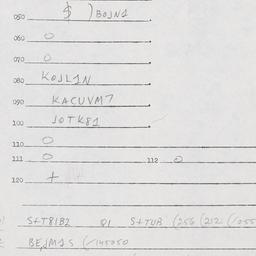 050 $ ) BOJN1
060 O
070 O
080 KOJL1N
090 KACUVM7
100 JOTK81
110 O
111 O 112 O
120 +
S+T81B2 Q1 S+TUB (256 (212 (/055
BEJM1S (/145050